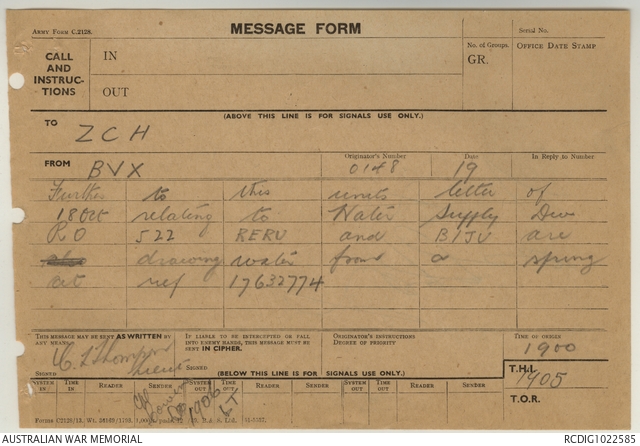 ARMY FORM C.2128.
MESSAGE FORM
Serial No.
CALL AND INSTRUC-TIONS
IN
OUT
No. of Groups.
GR.
OFFICE DATE STAMP
(ABOVE THIS LINE IS FOR SIGNALS USE ONLY.)
TO
ZCH
FROM
BVX
Originator's Number
0148
Date
19
In Reply to Number
Further to this units letter of
18 Oct relating to Water Supply Div
RO 522 RERU and BIJU are
drawing water from a spring
at ref 17632774
THIS MESSAGE MAY BE SENT AS WRITTEN BY ANY MEANS
SIGNED
IF LIABLE TO BE INTERCEPTED OR FALL INTO ENEMY HANDS, THIS MESSAGE MUST BE SENT IN CIPHER.
SIGNED
ORIGINATOR'S INSTRUCTIONS
DEGREE OF PRIORITY
TIME OF ORIGIN
1900
(BELOW THIS LINE IS FOR SIGNALS USE ONLY.)
T.H.I.
1905
T.O.R.
SYSTEM IN
TIME IN
READER
SENDER
SYSTEM OUT
TIME OUT
READER
SENDER
SYSTEM OUT
TIME OUT
READER
SENDER
1906
AUSTRALIAN WAR MEMORIAL
RCDIG1022585